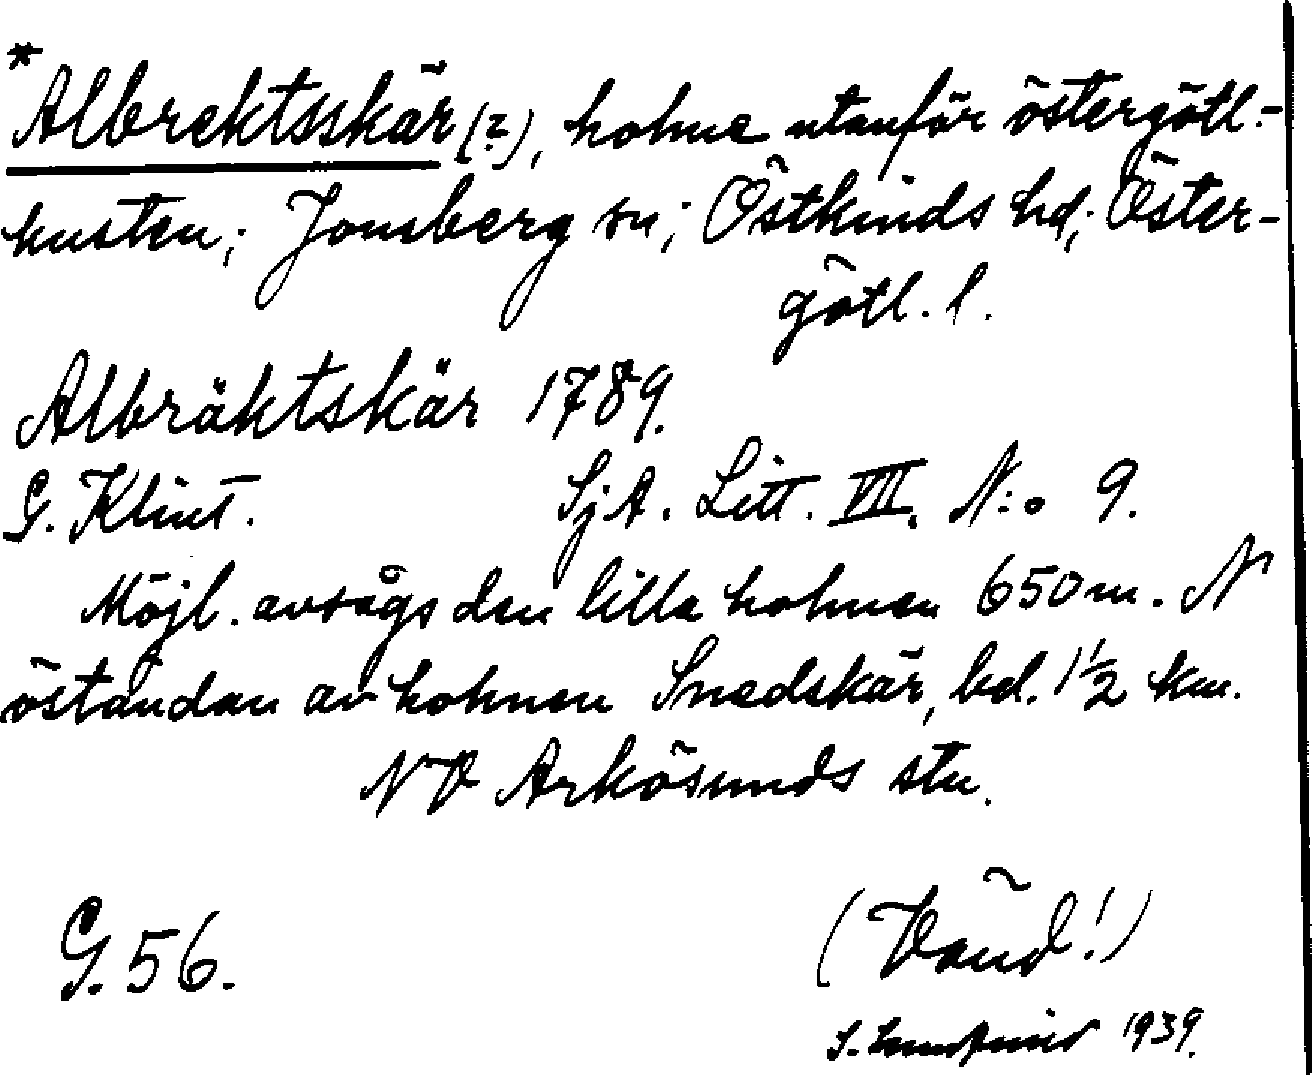 *Albrektsskär (?), holme utanför östergötl.-
kusten; Jonsberg sn; Östkinds hd; Öster-
götl. l.
Albräktskär 1789.
G. Klint. SjA. Litt. VIII. N:o 9.
Möjl. avsågs den lilla holmen 650 m. N
östandan av holmen Snedskär, bd. 1 1/2 km.
NO Arkösunds stn.
G. 56. (Vänd!)
S. 1939.